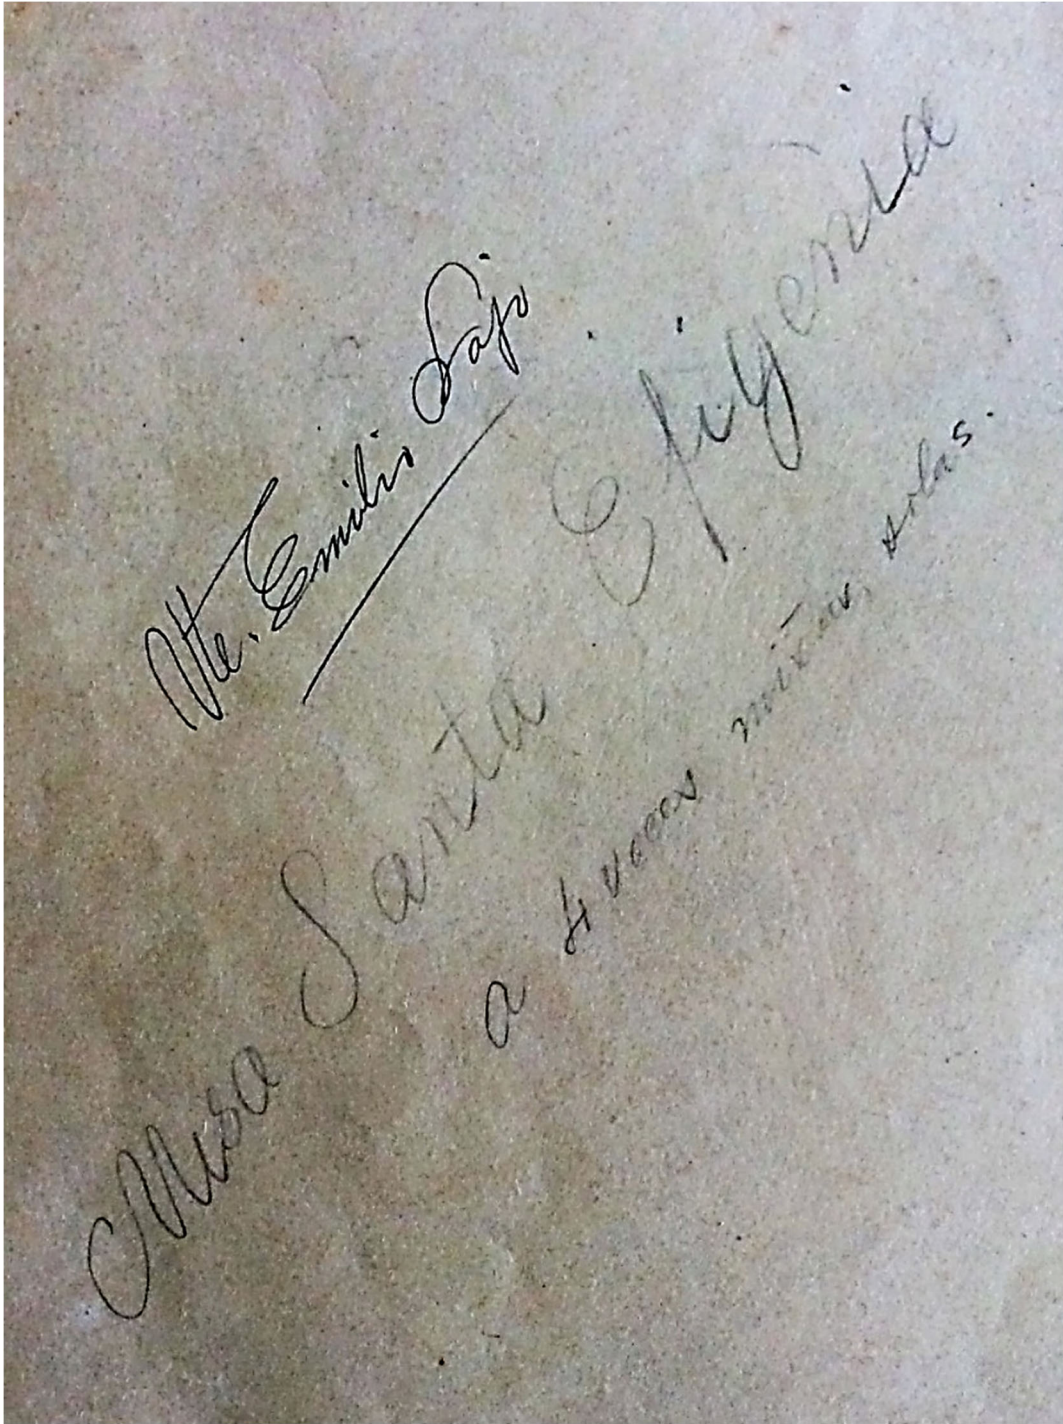 Vte. Emilio Sajo
Misa Santa Efigenia
a 4 voces mixtas, solas.